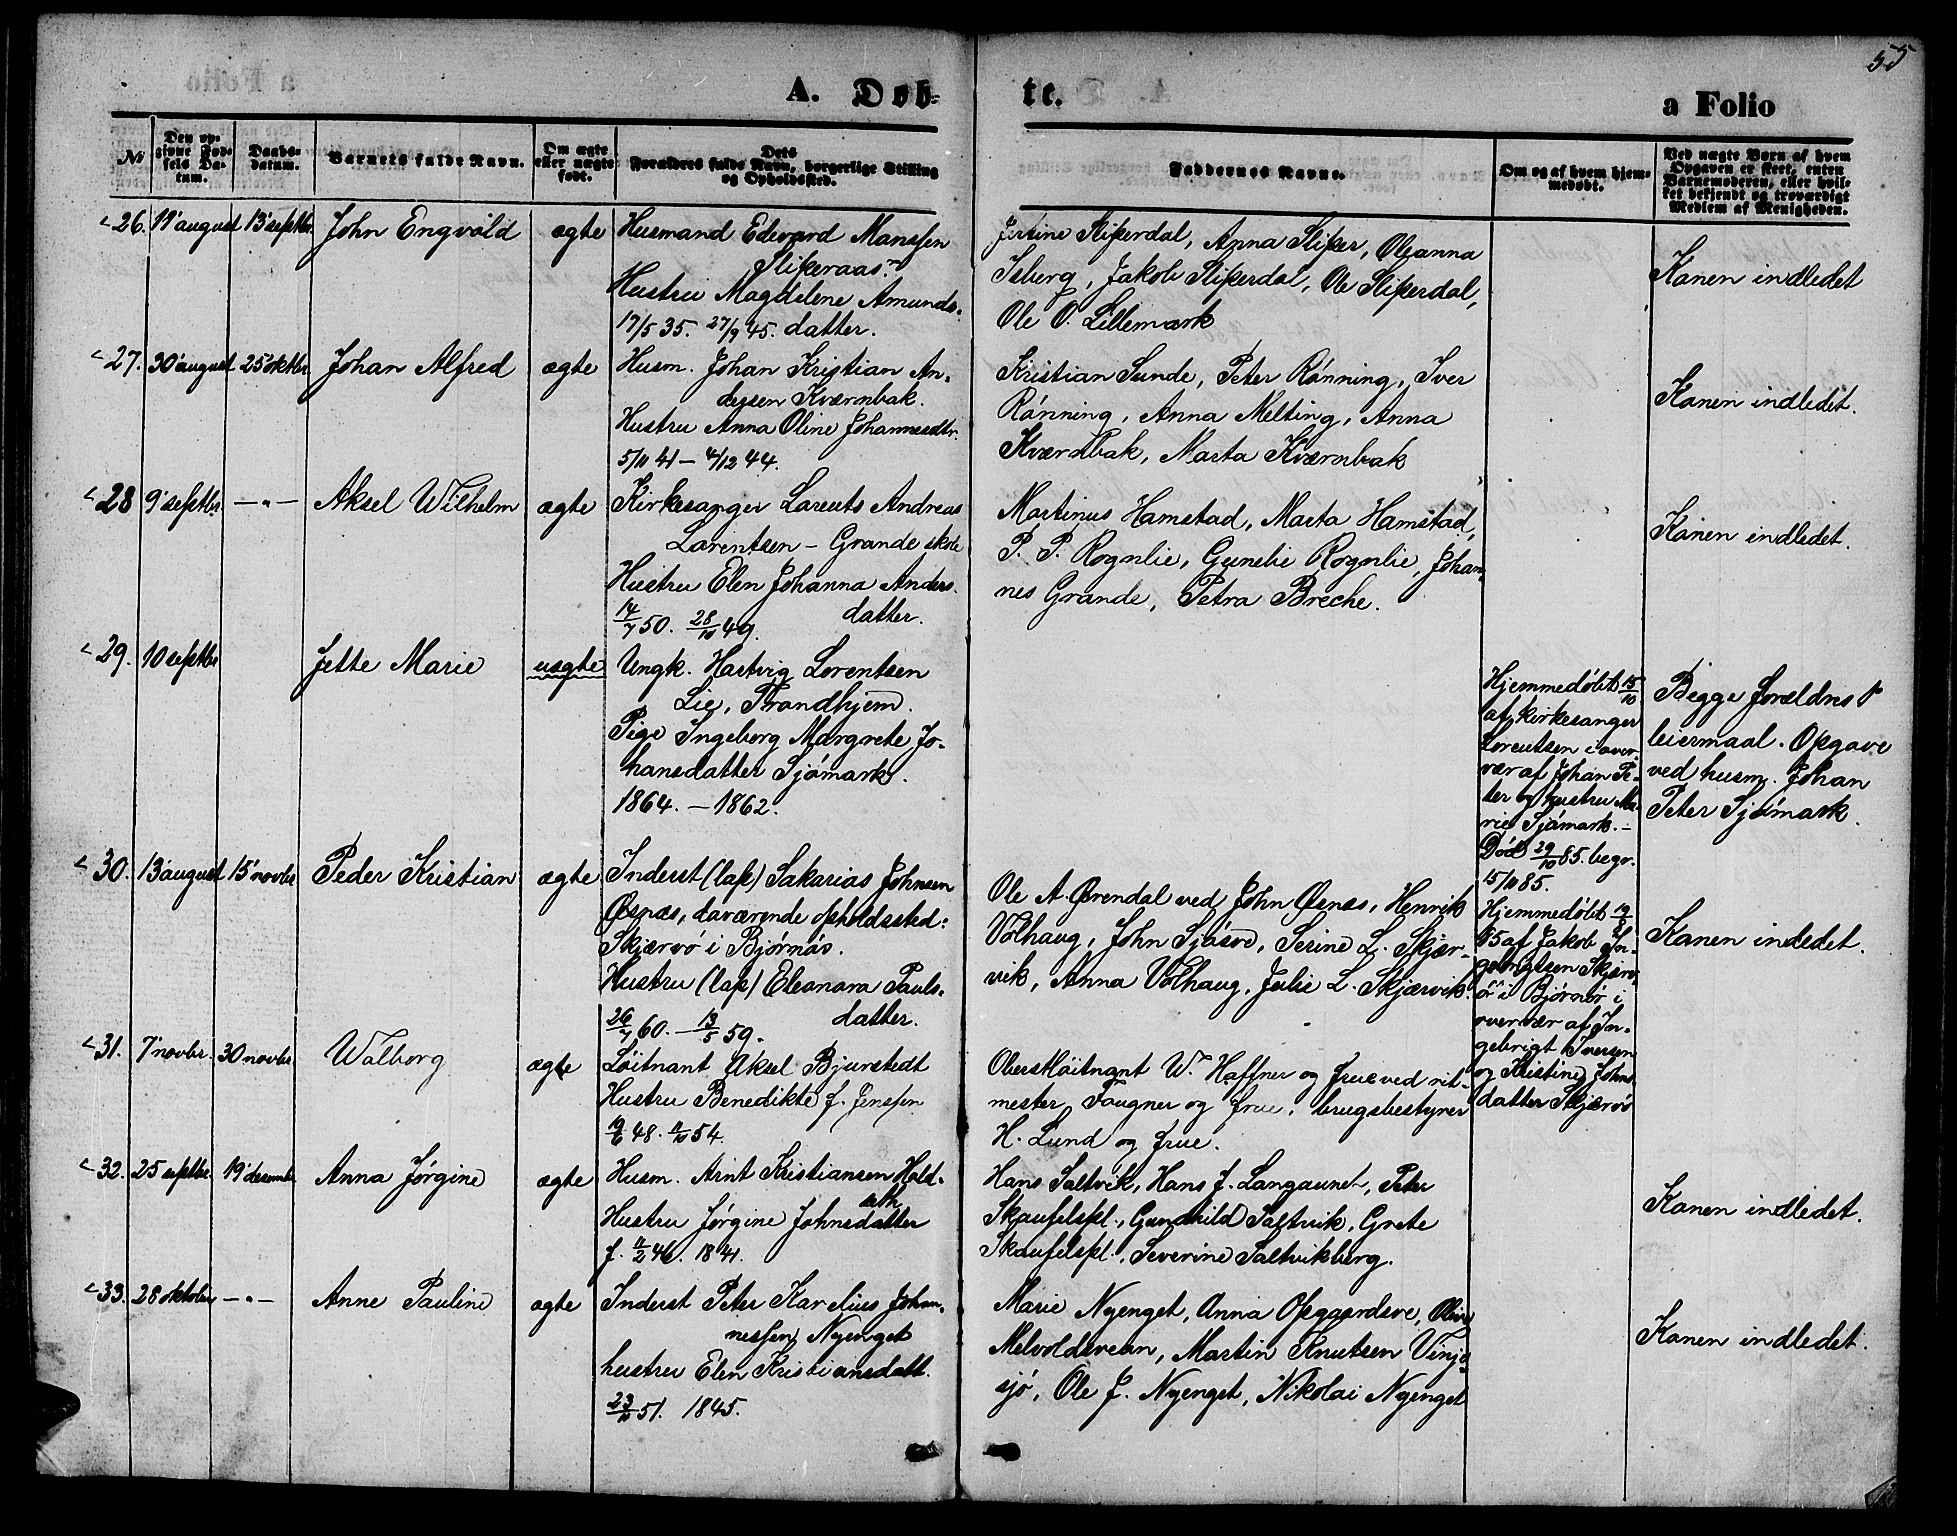 55
A. Døb-
te.
a Folio
No
Den op-
givne Fød-
sels Da-
tum.
Daabs-
datum.
Barnets fulde Navn.
Om ægte
eller uægte
født.
Dets
Forældres fulde Navn, borgerlige Stilling
og Opholdssted.
Faddernes Navne.
Om og af hvem hjem-
medøbt.
Ved uægte Børn af hvem
Opgaven er skeet, enten
Barnemoderen, eller hvil-
ket bekjendt og troværdigt
Medlem af Menigheden.
26. 11' august 13' septbr. John Engvald ægte
Husmand Edevard Monssen
Slipreraas
Hustru Magdelene Amunds-
17/5 35. 27/9 45. datter.
Slipperdal, Anna Sliper, Oleanna
Isberg, Jakob Sliperdal, Ole Sliperdal,
Ole O. Lillemark
Konen indledet
27. 30' august 25' oktbr. Johan Alfred ægte
Husm. Johan Kristian An-
dersen Kværnbak.
Hustru Anna Oline Johannesdtr.
5/11 41 — 4/12 44.
Kristian Sunde, Peter Rønning, Iver
Rønning, Anna Melting, Anna
Kværnbak, Marta Kværnbak
Konen indledet.
28 9' septbr. —"— Aksel Wilhelm ægte
Kirkesanger Lorents Andreas
Lorentsen — Grande skole
Hustru Elen Johanna Anders-
14/7 50. 28/10 49. datter.
Martinus Hamstad, Marta Hamstad,
P. P. Rognlie, Gunelie Rognlie, Johan-
nes Grande, Petra Breche.
Konen indledet.
29. 10 septbr Jette Marie uægte
Ungk. Hartvig Lorentsen
Lie, Trondhjem.
Pige Ingeborg Margrete Jo-
hansdatter Sjømark.
1864. — 1862.
Hjemmedøbt 15/10
af kirkesanger
Lorentsen i over-
vær af Johan Pe-
ter og hustru Ma-
rie Sjømark. —
Død 29/10 85. begr.
15/11 85.
Begge forældres 1'
leiermaal. Opgave
ved husm. Johan
Peter Sjømark.
30. 13' august 15' novbr. Peder Kristian ægte
Inderst (lap) Sakarias Johnsen
Øsnæs, daværende opholdssted:
Skjærvø i Bjørnør.
Hustru (lap) Eleonora Pauls-
26/7 60. — 13/5 59. datter.
Ole A. Ørendal ved John Øsnæs, Henrik
Volhaug, John Sjåsve, Serine L. Skjær-
vik, Anna Volhaug, Julie L. Skjærvik.
Hjemmedøbt
85 af Jakob In-
gebrigtsen Skjærv-
ø i Bjørnør i
overvær af In-
gebrigt Iversen
og Kristine Johns-
datter Skjærvø
Konen indledet.
31. 7' novbr. 30 novbr Walborg ægte
Løitnant Aksel Bjurstedt
Hustru Benedikte f. Jenssen
19/6 48. 11/10 54.
Oberstløitnant W. Haffner og frue ved rit-
mester Faugner og frue, brugsbestyrer
H. Lund og frue.
32. 25 septbr 19' desember Anna Jørgine ægte
Husm. Arnt Kristiansen Hald-
seth
Hustru Jørgine Johnsdatter
f. 11/2 46. 1841.
Hans Saltvik, Hans J. Langaunet, Peter
Skaufelspl., Gunhild Saltvik, Grete
Skaufelspl., Severine Saltvikberg.
Konen indledet.
33. 28 oktober —"— Anne Pauline ægte
Inderst Peter Karelius Johan-
nessen Nyenget
hustru Elen Kristiansdatt.
23/10 51. 1845.
Marie Nyenget, Anna Opgaardsve, Oline
Melvoldsvean, Martin Knutsen Vinje-
sjø, Ole J. Nyenget, Nikolai Nyenget
Konen indledet.